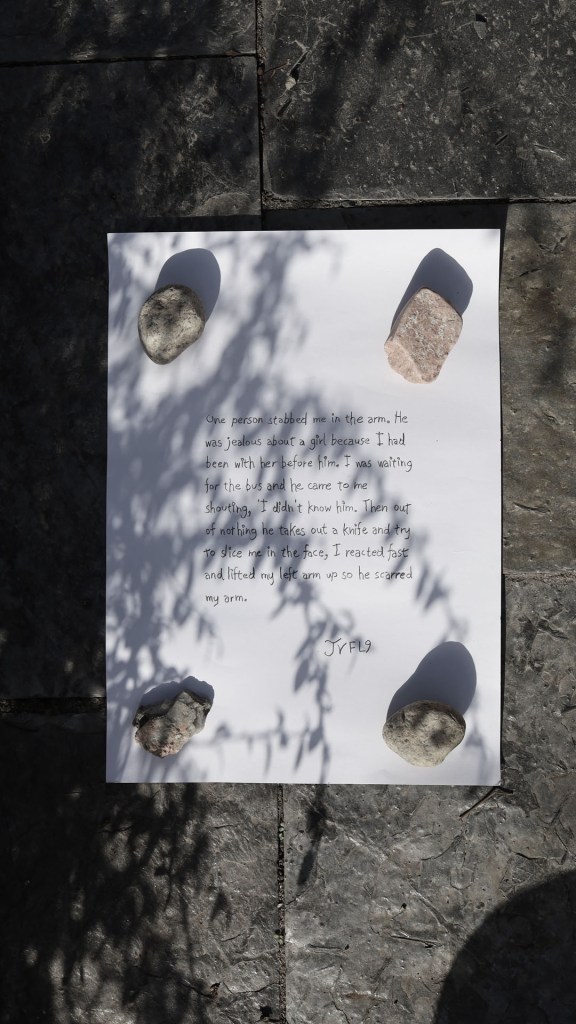 One person stabbed me in the arm. He
was jealous about a girl because I had
been with her before him. I was waiting
for the bus and he came to me
shouting, 'I didn't know him. Then out
of nothing he takes out a knife and try
to slice me in the face, I reacted fast
and lifted my left arm up so he scarred
my arm.
JVFL9